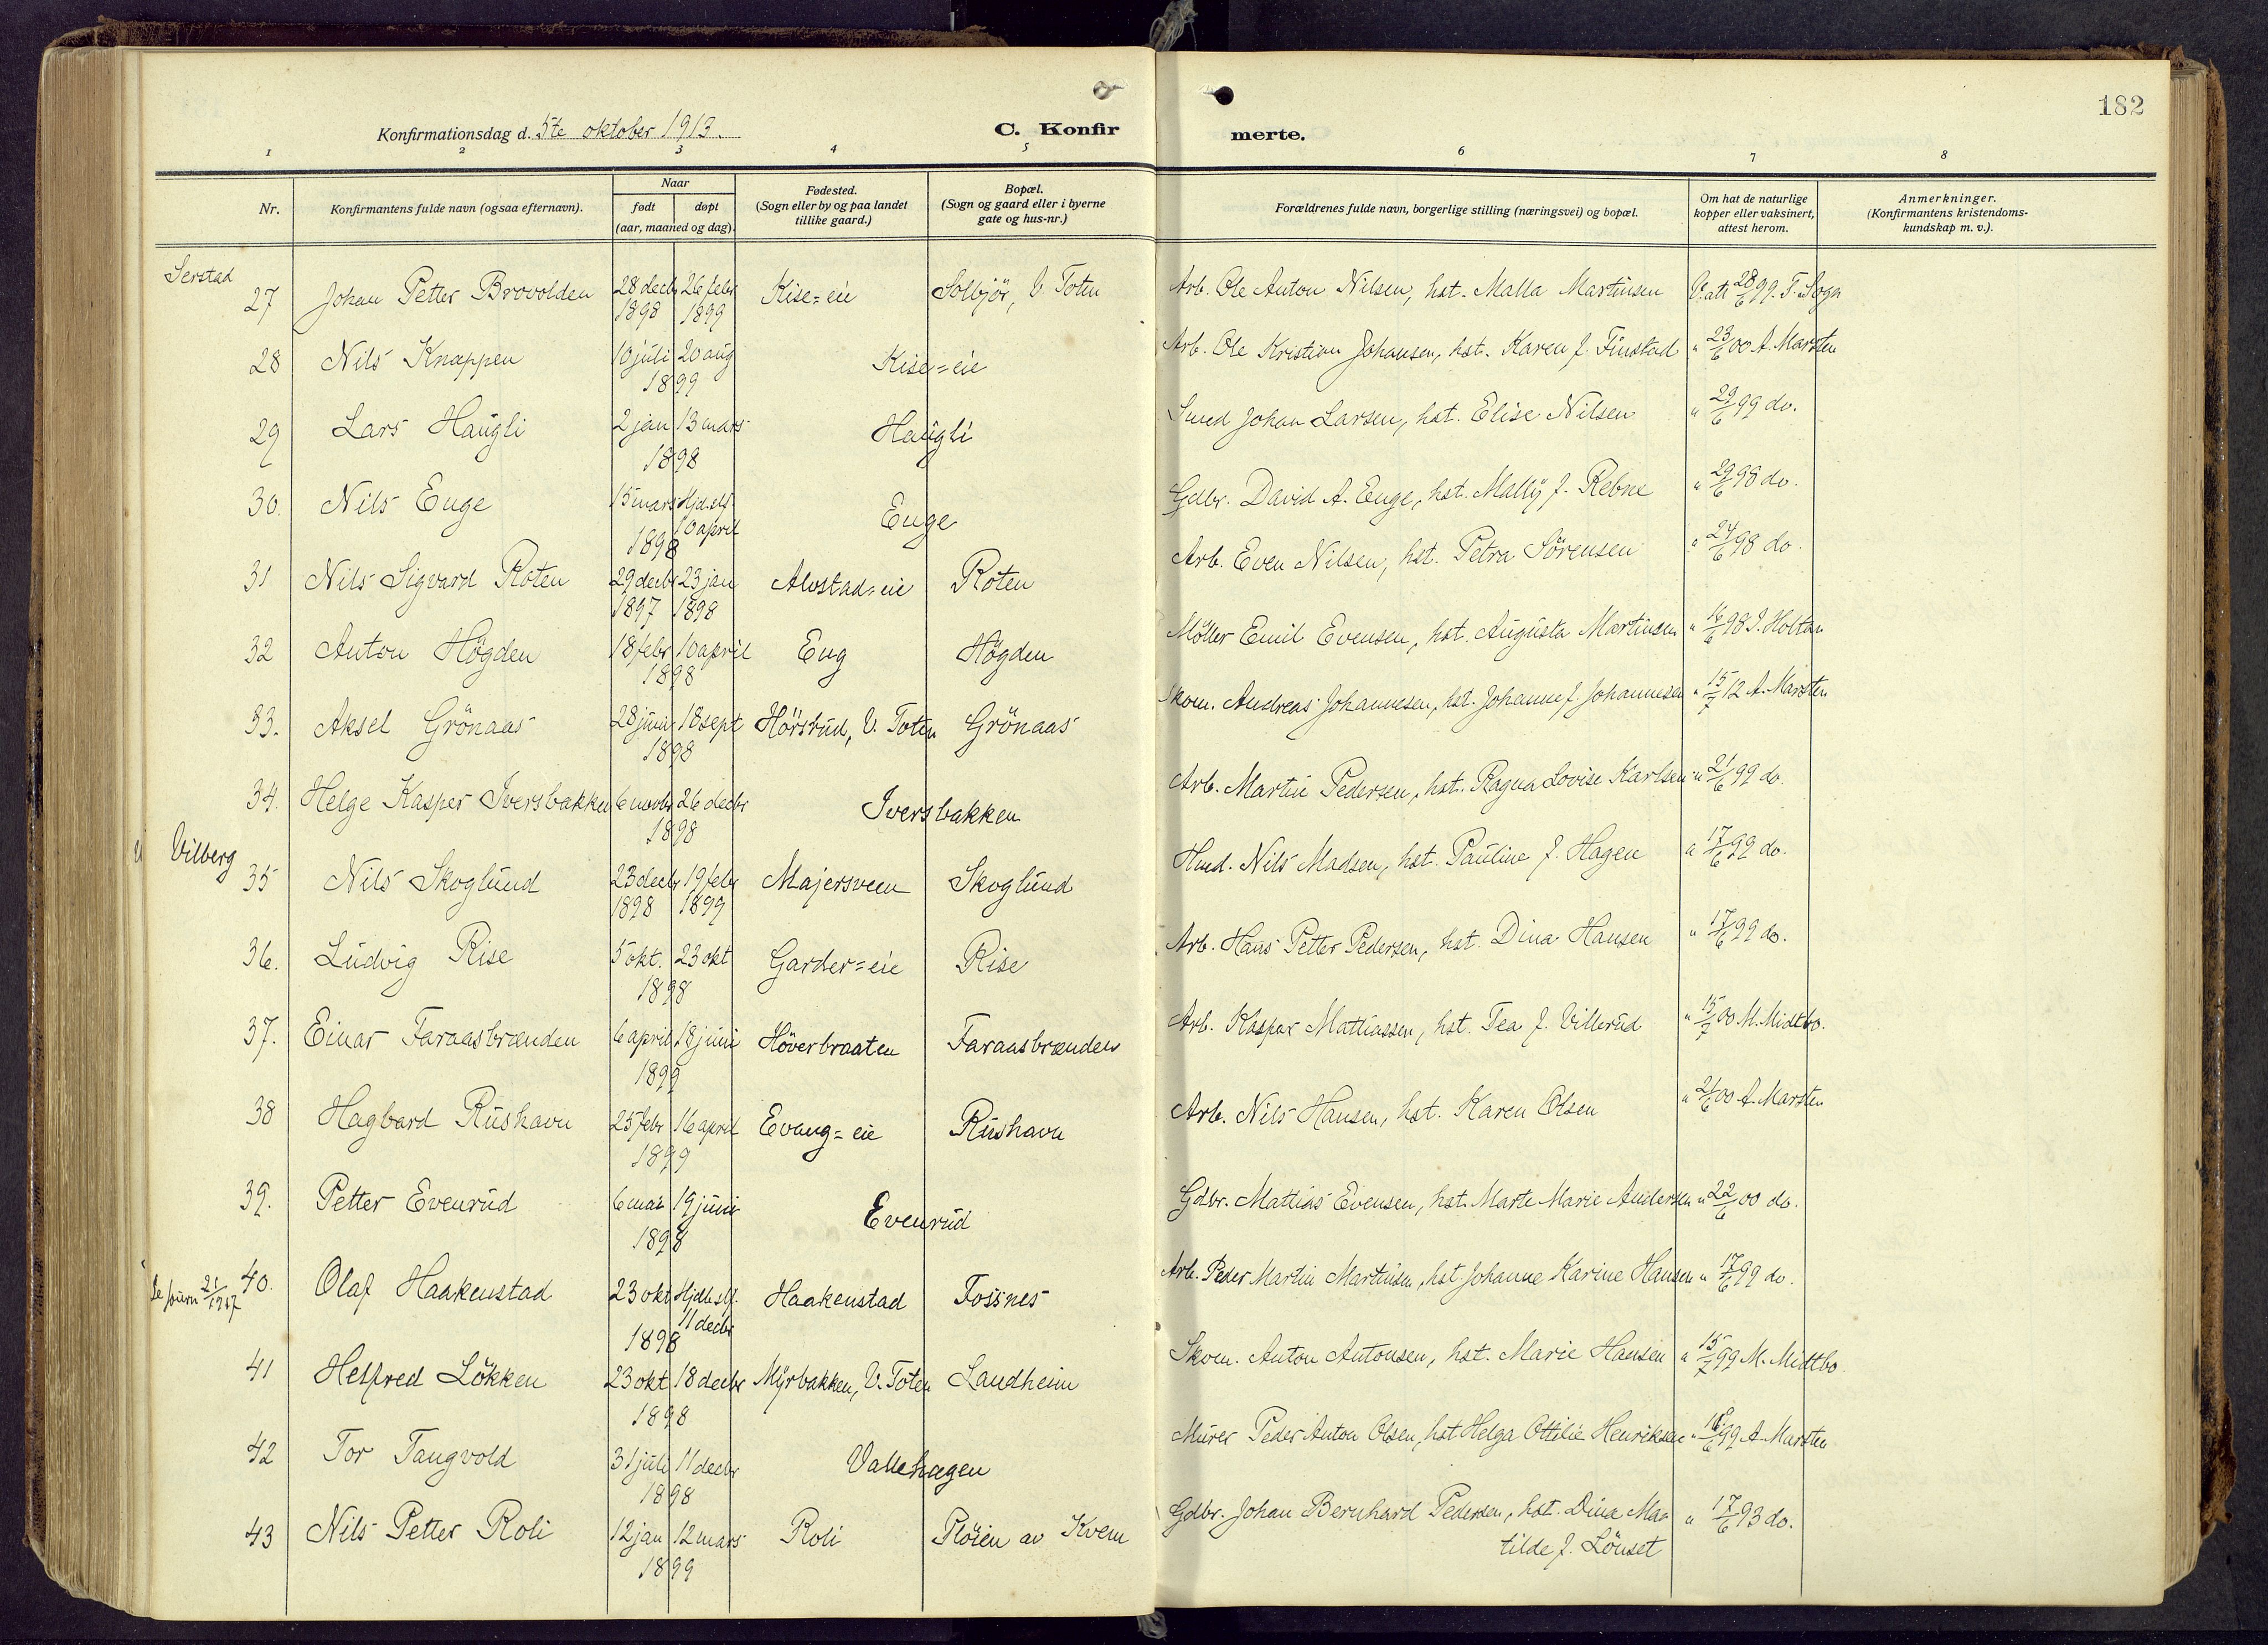 182
Konfirmationsdag d. 5te oktober 1913.
C. Konfirmerte.
1 2 3 4 5 6 7 8
Nr.
Konfirmantens fulde navn (ogsaa efternavn).
Naar
født
døpt
(aar, maaned og dag).
Fødested.
(Sogn eller by og paa landet
tillike gaard.)
Bopæl.
(Sogn og gaard eller i byerne
gate og hus-nr.)
Forældrenes fulde navn, borgerlige stilling (næringsvei) og bopæl.
Om hat de naturlige
kopper eller vaksinert,
attest herom.
Anmerkninger.
(Konfirmantens kristendoms-
kundskap m. v.).
Serstad
27 Johan Petter Brovolden 28 decbr 1898 26 febr 1899 Kise=eie Solbjör, V. Toten Arb. Ole Anton Nilsen, hst. Malla Martinsen V. att 28/6 99. T. Sogn
28 Nils Knappen 10 juli 20 aug 1899 Kise=eie Arb. Ole Kristian Johansen, hst. Karen f. Finstad " 23/6 00 A. Marsten
29 Lars Haugli 2 jan 13 mars 1898 Haugli Smed Johan Larsen, hst. Elise Nilsen " 29/6 99 do.
30. Nils Enge 15 mars Hjd. st. 10 april 1898 Enge Gdbr. David A. Enge, hst. Mally f. Rebne " 29/6 98 do.
31 Nils Sigvard Roten 29 decbr 1897 23 jan 1898 Alvstad=eie Roten Arb. Even Nilsen, hst. Petra Sörensen " 24/6 98 do.
32 Anton Högden 18 febr 10 april 1898 Eng Högden Möller Emil Evensen, hst. Augusta Martinsen " 16/6 98 I. Holtan
33. Aksel Grönaas 28 juni 18 sept 1898 Hörsrud, V. Toten Grönaas Skom. Andreas Johannesen, hst. Johanne f. Johannesen " 15/7 12 A. Marsten
34. Helge Kasper Iversbakken 6 novbr 26 decbr 1898 Iversbakken Arb. Martin Pedersen, hst. Ragna Lovise Karlsen " 21/6 99 do.
Vilberg
35 Nils Skoglund 23 decbr 1898 19 febr 1899 Majersveen Skoglund Hmd. Nils Madsen, hst. Pauline f. Hagen " 17/6 99 do.
36. Ludvig Rise 5 okt. 23 okt 1898 Garder=eie Rise Arb. Hans Petter Pedersen, hst. Dina Hansen " 17/6 99 do.
37. Einar Faraasbrænden 6 april 18 juni 1899 Höverbraaten Faraasbrænden Arb. Kaspar Mattiassen, hst. Tea f. Villerud " 15/7 00 M. Midtbo.
38 Hagbard Rushavn 25 febr 16 april 1899 Evang=eie Rushavn Arb. Nils Hansen, hst. Karen Olsen " 21/6 00 A. Marsten
39. Petter Evenrud 6 mai 19 juni 1898 Evenrud Gdbr. Mattias Evensen, hst. Marte Marie Andersen " 22/6 00 do.
21/1 1917
40. Olaf Haakenstad 23 okt Hjd. st. 11 decbr 1898 Haakenstad Fossnes Arb. Peder Martin Martinsen, hst. Johanne Karine Hansen " 17/6 99 do.
41 Helfred Lökken 23 okt 18 decbr 1898 Myrbakken, V. Toten Landheim Skom. Anton Antonsen, hst. Marie Hansen " 15/7 99 M. Midtbo
42 Tor Tangvold 31 juli 11 decbr 1898 Vallehagen Murer Peder Anton Olsen, hst Helga Ottilie Henriksen " 99 A. Marsten
43 Nils Petter Roli 12 jan 12 mars 1899 Roli Plöien av Kvem Gdbr. Johan Bernhard Pedersen, hst. Dina Ma= " 17/6 93 do.
tilde f. Lönset